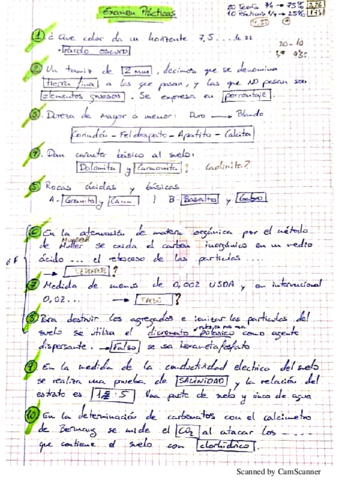 Examen Prácticas
20 Teoría 3/4 → 75%
1 ¿Que color da un horizonte 7,5...
Pardo oscuro
2 Un tamiz de 2 mm, decimos que se denomina
tierra fina a los que pasan, y los que NO pasan son
elementos gruesos. Se expresa en porcentaje.
3 Dureza de mayor a menor: Duro → Blando
Corindón - Feldespato - Apatito - Calcita
4 Dan carácter básico al suelo:
Dolomita y
5 Rocas ácidas y básicas
A - Granito y | B - Basalto y Gabro
6 En la de materia orgánica por el método
de se oxida el carbono inorgánico en un medio
ácido ... el retroceso de las partículas ...
7 Medida de menos de 0,002 USDA y en internacional
0,02...
8 Para destruir los agregados e ionizar las partículas del
suelo se utiliza el dicromato potásico como agente
dispersante. → Falso se usa
9 En la medida de la conductividad eléctrica del suelo
se realiza una prueba de SALINIDAD y la relación del
extracto es 1:5. Una parte de suelo y cinco de agua
10 En la determinación de carbonatos con el calcímetro
de Bernard se mide el CO₂ al atacar los ----
que contiene el suelo con clorhídrico.
Scanned by CamScanner